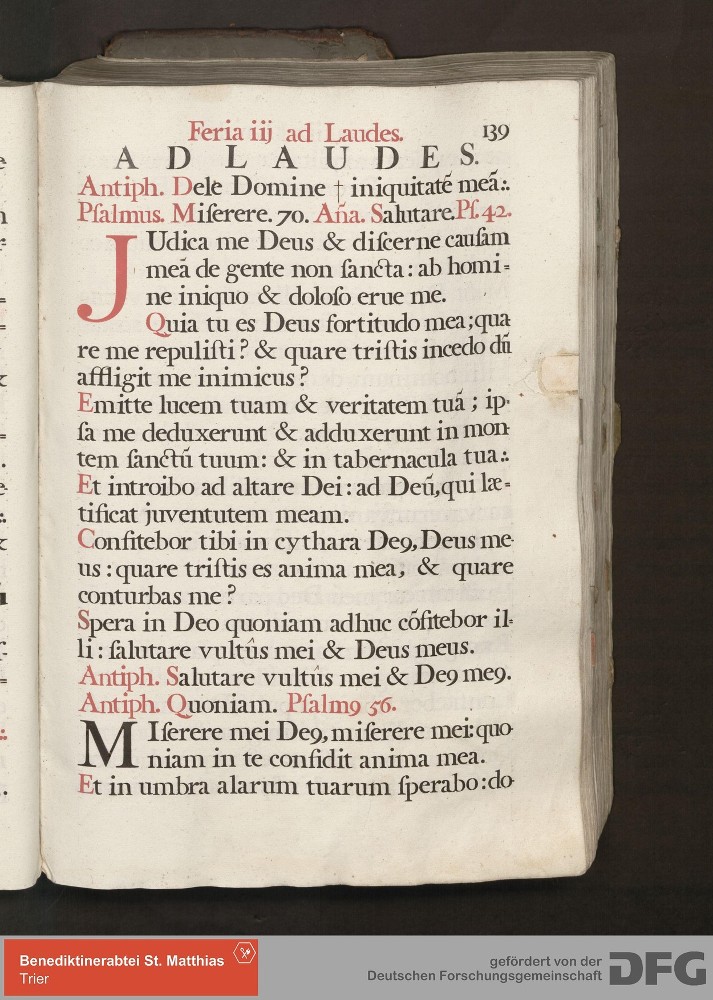 Feria iij ad Laudes. 139
A D L A U D E S.
Antiph. Dele Domine † iniquitatẽ meã:.
Pſalmus. Miſerere. 70. Aña. Salutare. Pſ. 42.
JUdica me Deus & diſcerne cauſam
meã de gente non ſancta: ab homi=
ne iniquo & doloſo erue me.
Quia tu es Deus fortitudo mea; qua
re me repuliſti? & quare triſtis incedo dũ
affligit me inimicus?
Emitte lucem tuam & veritatem tuã; ip-
ſa me deduxerunt & adduxerunt in mon
tem ſanctũ tuum: & in tabernacula tua:.
Et introibo ad altare Dei: ad Deũ, qui læ=
tificat juventutem meam.
Confitebor tibi in cythara De9, Deus me-
us: quare triſtis es anima mea, & quare
conturbas me?
Spera in Deo quoniam adhuc cõfitebor il-
li: ſalutare vultûs mei & Deus meus.
Antiph. Salutare vultûs mei & De9 me9.
Antiph. Quoniam. Pſalm9 56.
MIſerere mei De9, miſerere mei: quo
niam in te confidit anima mea.
Et in umbra alarum tuarum ſperabo: do-
Benediktinerabtei St. Matthias
Trier
gefördert von der
Deutschen Forschungsgemeinschaft
DFG